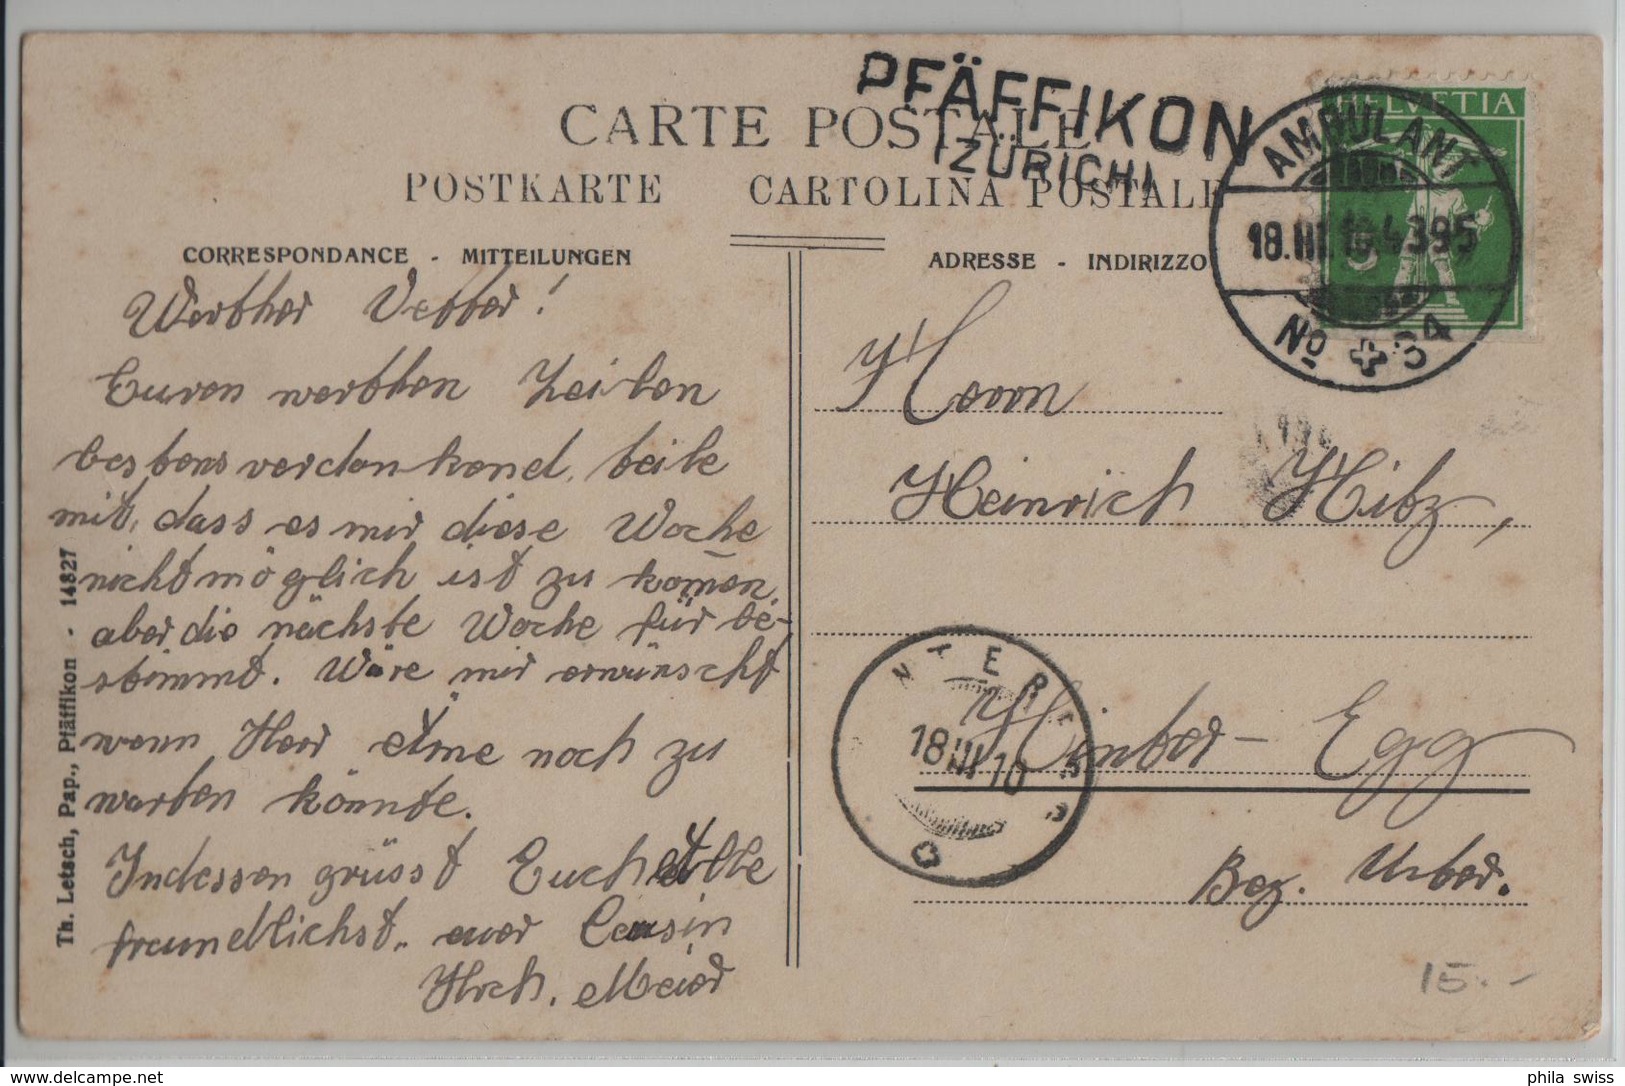 CARTE POSTALE
POSTKARTE CARTOLINA POSTALE
PFÄFFIKON
(ZÜRICH)
HELVETIA
5
AMBULANT
18.III.10.4 395
No 34
CORRESPONDANCE - MITTEILUNGEN
ADRESSE - INDIRIZZO
Werther Vetter!
Euren werthen Zeilen
bestens verdankend, teile
mit, dass es mir diese Woche
nicht möglich ist zu kom̄en,
aber die nächste Woche für be-
stimmt. Wäre mir erwünscht
wenn Herr
noch zu
warten könnte.
Indessen grüsst Euch
freundlichst, euer Cousin
Hrch. Meier
Herrn
Heinrich Hitz,
Hinter-Egg
Bez. Uster.
USTER
18 III 10
Th. Letsch, Pap., Pfäffikon - 14827
15.-
phila swiss